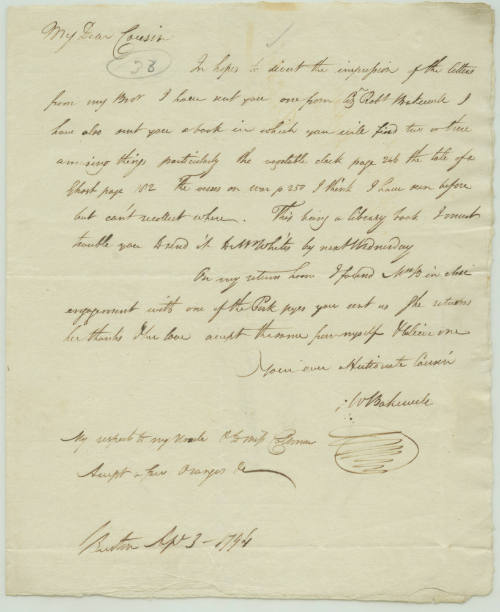 My Dear Cousin
28
In hopes to divert the impression of the letters
from my Bror I have sent you one from Robt Bakewell I
have also sent you a book in which you will find two or three
amusing things particularly the vegetable clock page 246 the tale of a
Ghost page 182 The verses on war p 250 I think I have seen before
but can't recollect where. This being a Library book I must
trouble you to send it to Mr White's by next Wednesday
On my return home I found Mrs B in close
engagement with one of the Pork pyes you sent us She returns
her thanks & her love accept the same from myself & believe me
Your ever affectionate Cousin
W Bakewell
My respects to my Uncle & to Miss
Accept a few Oranges &c
Burton Apl 3 - 1794